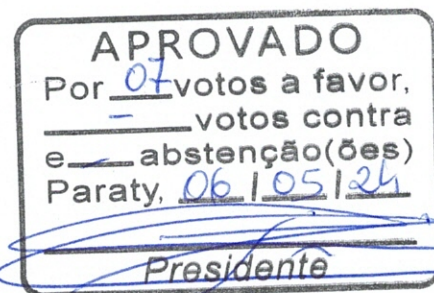 APROVADO
Por 07 votos a favor,
- votos contra
e - abstenção(ões)
Paraty, 06 / 05 / 24
Presidente